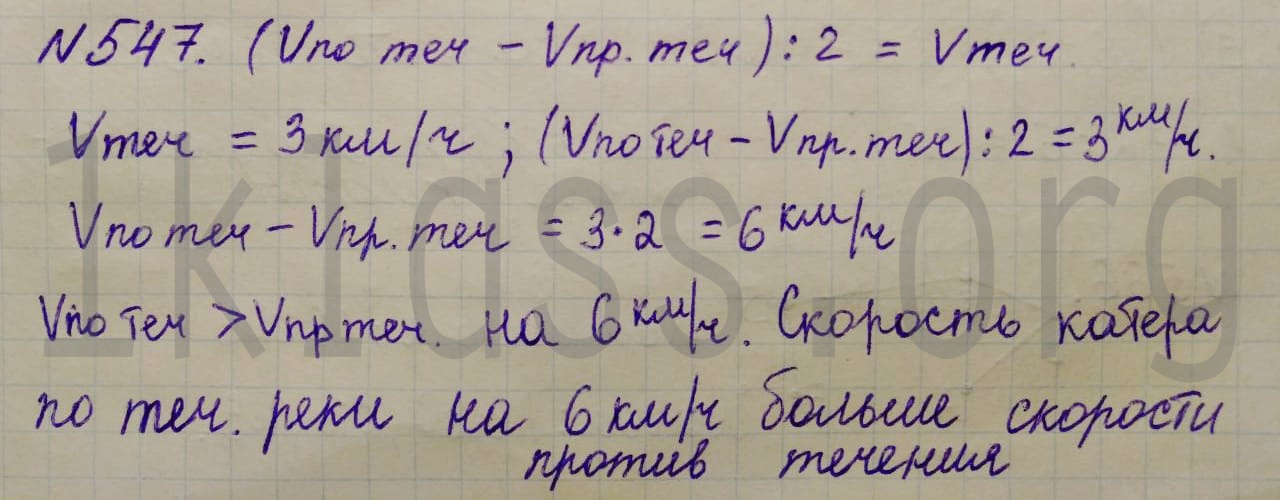 N547. (Vпо теч - Vпр. теч) : 2 = Vтеч.
Vтеч = 3 км/ч ; (Vпо теч - Vпр. теч) : 2 = 3 км/ч.
Vпо теч - Vпр. теч = 3 · 2 = 6 км/ч
Vпо теч > Vпр теч. на 6 км/ч. Скорость катера
по теч. реки на 6 км/ч больше скорости
против течения
1klass.org